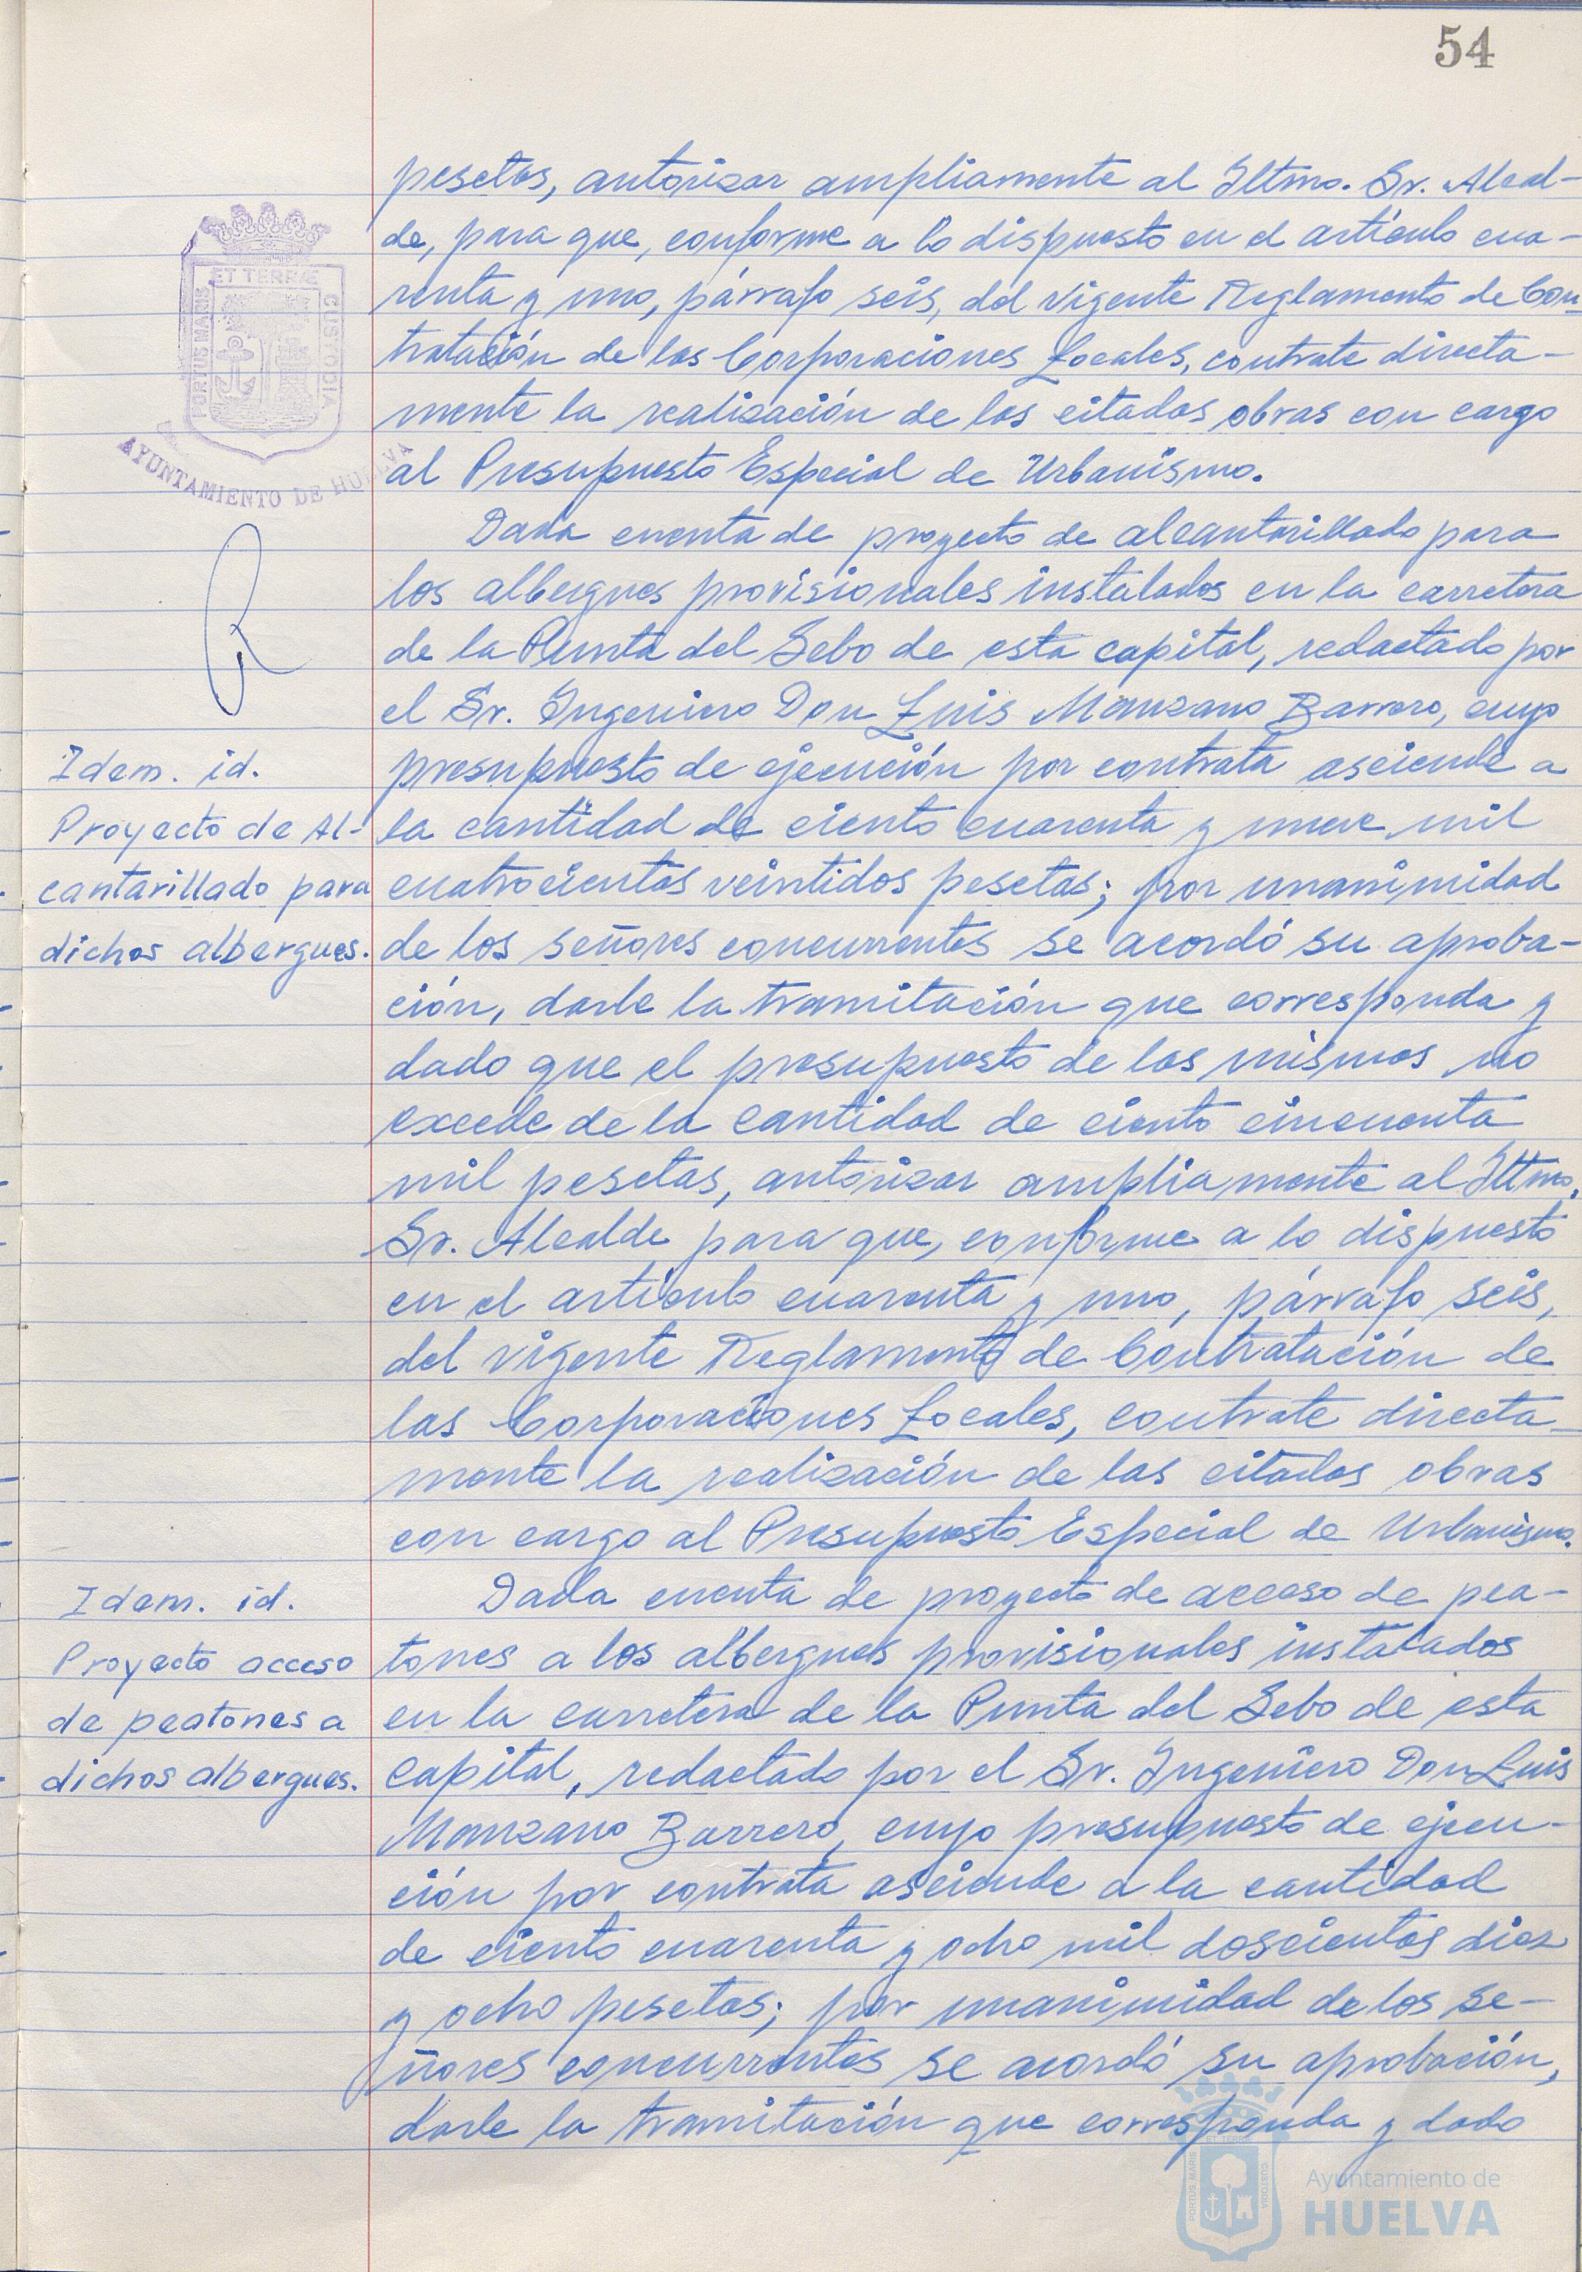 54
pesetas, autorizar ampliamente al Iltmo. Sr. Alcal-
de, para que, conforme a lo dispuesto en el artículo cua-
renta y uno, párrafo seis, del vigente Reglamento de Con-
tratación de las Corporaciones Locales, contrate directa-
mente la realización de las citadas obras con cargo
al Presupuesto Especial de Urbanismo.
ET TERRÆ
PORTUS MARIS
CUSTODIA
AYUNTAMIENTO DE HUELVA
Dada cuenta de proyecto de alcantarillado para
los albergues provisionales instalados en la carretera
de la Punta del Sebo de esta capital, redactado por
el Sr. Ingeniero Don Luis Manzano Barrero, cuyo
Idem. id.
Proyecto de Al-
cantarillado para
dichos albergues.
presupuesto de ejecución por contrata asciende a
la cantidad de ciento cuarenta y nueve mil
cuatrocientas veintidos pesetas; por unanimidad
de los señores concurrentes se acordó su aproba-
ción, darle la tramitación que corresponda y
dado que el presupuesto de las mismas no
excede de la cantidad de ciento cincuenta
mil pesetas, autorizar ampliamente al Iltmo.
Sr. Alcalde para que, conforme a lo dispuesto
en el artículo cuarenta y uno, párrafo seis,
del vigente Reglamento de Contratación de
las Corporaciones Locales, contrate directa-
mente la realización de las citadas obras
con cargo al Presupuesto Especial de Urbanismo.
Idem. id.
Proyecto acceso
de peatones a
dichos albergues.
Dada cuenta de proyecto de acceso de pea-
tones a los albergues provisionales instalados
en la carretera de la Punta del Sebo de esta
capital, redactado por el Sr. Ingeniero Don Luis
Manzano Barrero, cuyo presupuesto de ejecu-
ción por contrata asciende a la cantidad
de ciento cuarenta y ocho mil doscientas diez
y ocho pesetas; por unanimidad de los se-
ñores concurrentes se acordó su aprobación,
darle la tramitación que corresponda y dado
ET TERRÆ
PORTUS MARIS
CUSTODIA
Ayuntamiento de
HUELVA